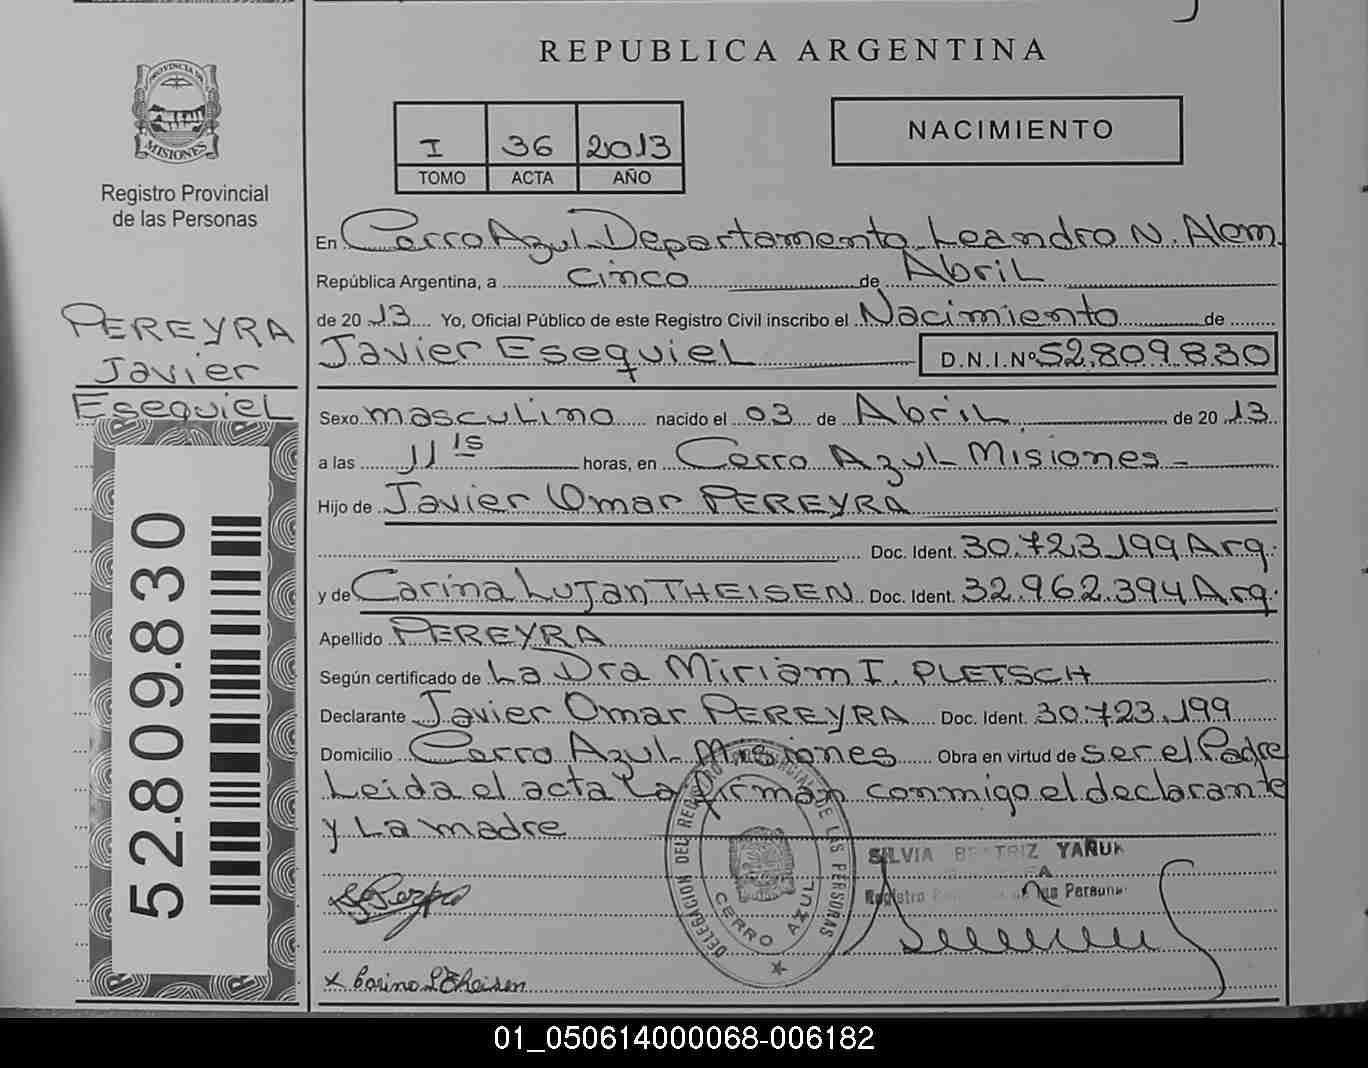 REPUBLICA ARGENTINA
PROVINCIA DE
MISIONES
Registro Provincial
de las Personas
I 36 2013
TOMO ACTA AÑO
NACIMIENTO
PEREYRA
Javier
Esequiel
52.809.830
En Cerro Azul Departamento Leandro N. Alem
República Argentina, a cinco de Abril
de 2013 Yo, Oficial Público de este Registro Civil inscribo el Nacimiento de
Javier Esequiel D.N.I.Nº52.809.830
Sexo masculino nacido el 03 de Abril de 2013
a las 11 15 horas, en Cerro Azul Misiones -
Hijo de Javier Omar PEREYRA
Doc. Ident. 30.723.199 Arg.
y de Carina Lujan THEISEN Doc. Ident. 32.962.394 Arg.
Apellido PEREYRA
Según certificado de La Dra Miriam I. PLETSCH
Declarante Javier Omar PEREYRA Doc. Ident. 30.723.199
Domicilio Cerro Azul Misiones Obra en virtud de ser el Padre
Leida el acta la firman conmigo el declarante
y La madre
DELEGACION DEL REGISTRO PROVINCIAL DE LAS PERSONAS
CERRO AZUL
SILVIA BEATRIZ
Registro
x Carina L Theisen
01_050614000068-006182